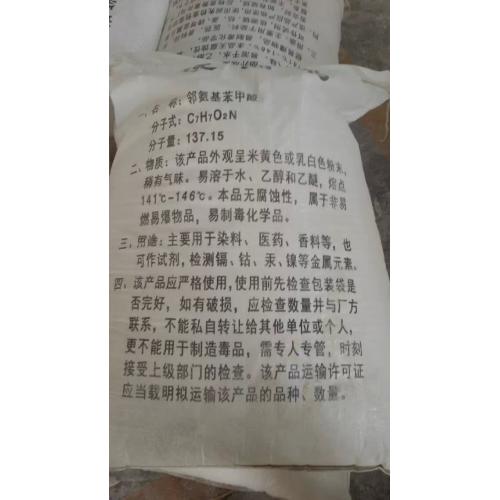 一、名 称：邻氨基苯甲酸
分子式：C7H7O2N
分子量：137.15
二、物质：该产品外观呈米黄色或乳白色粉末，
稍有气味。易溶于水、乙醇和乙醚，熔点
141℃-146℃。本品无腐蚀性，属于非易
燃易爆物品，易制毒化学品。
三、用途：主要用于染料、医药、香料等，也
可作试剂，检测镉、钴、汞、镍等金属元素。
四、该产品应严格使用，使用前先检查包装袋是
否完好，如有破损，应检查数量并与厂方
联系，不能私自转让给其他单位或个人，
更不能用于制造毒品，需专人专管，时刻
接受上级部门的检查。该产品运输许可证
应当载明拟运输该产品的品种、数量。